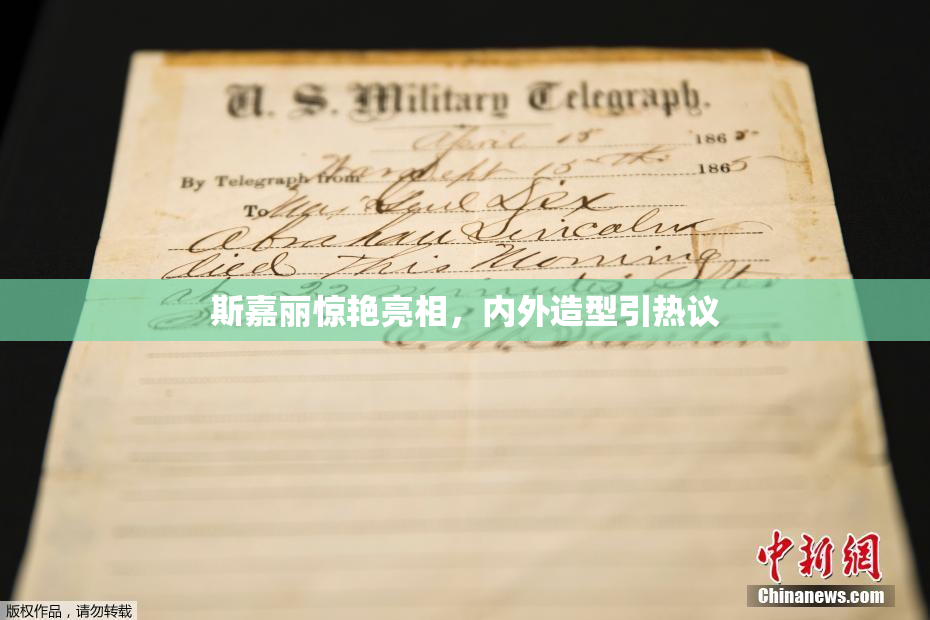 U. S. Military Telegraph.
April 15 1865
By Telegraph from War Dept 15th 1865
To Maj Genl Dix
Abraham Lincoln
died This Morning
at 22 minutes after
斯嘉丽惊艳亮相，内外造型引热议
E. M. Stanton
中新网
Chinanews.com
版权作品，请勿转载